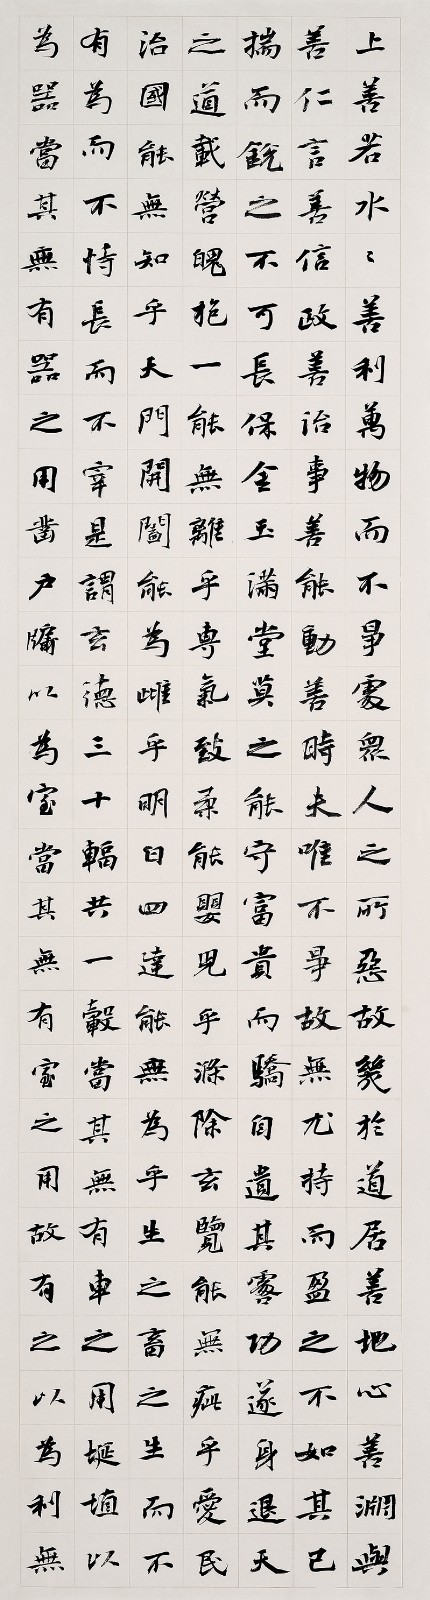 上善若水〻善利萬物而不爭處眾人之所惡故幾於道居善地心善淵與
善仁言善信政善治事善能動善時夫唯不爭故無尤持而盈之不如其已
揣而銳之不可長保金玉滿堂莫之能守富貴而驕自遺其咎功遂身退天
之道載營魄抱一能無離乎專氣致柔能嬰兒乎滌除玄覽能無疵乎愛民
治國能無知乎天門開闔能為雌乎明白四達能無為乎生之畜之生而不
有為而不恃長而不宰是謂玄德三十輻共一轂當其無有車之用埏埴以
為器當其無有器之用鑿戶牖以為室當其無有室之用故有之以為利無